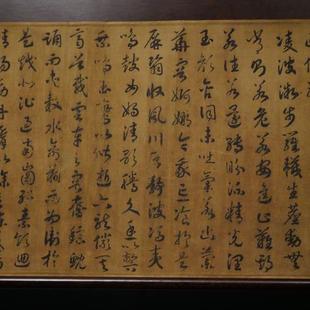 凌波微步羅襪生塵動無
常則若危若安進止難期
若往若還轉眄流精光潤
玉顏含辭未吐氣若幽蘭
華容婀娜令我忘飡於是
屏翳收風川后靜波馮夷
鳴鼓女媧清歌騰文魚以警
乘鳴玉鸞以偕逝六龍儼其
齊首載雲車之容裔鯨鯢
踊而夾轂水禽翔而為衛於
是越北沚過南岡紆素領迴